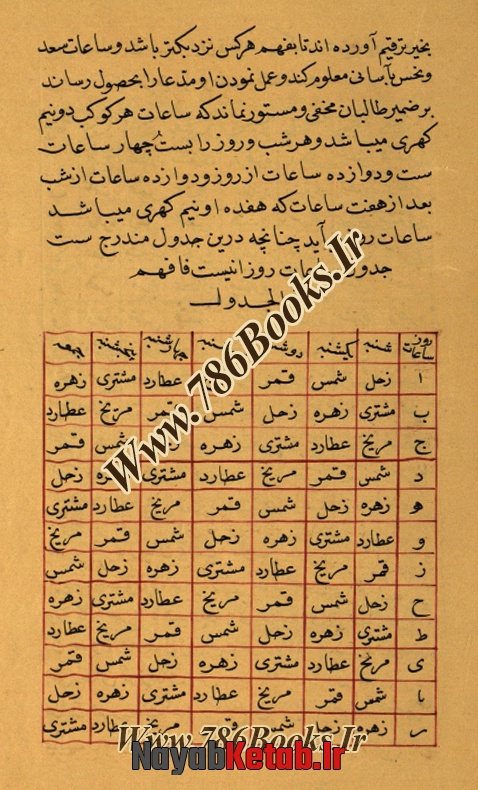 بخیر ترقیم آورده اند تا بفهم هر کس نزدیکتر باشد و ساعات سعد
و نحس بآسانی معلوم کند و عمل نمودن او مدعا را بحصول رساند
بر ضمیر طالبان مخفی و مستور نماند که ساعات هر کوکب دو نیم
کهری میباشد و هر شب و روز را بست چهار ساعات
ست و دوازده ساعات از روز و دوازده ساعات از شب
بعد از هفت ساعات که هفده او نیم کهری میباشد
ساعات آید چنانچه درین جدول مندرج ست
روز اینست فافهم
الجدول
روز ساعات شنبه یکشنبه
ا زحل شمس قمر عطارد مشتری زهره
ب مشتری زهره زحل شمس قمر مریخ عطارد
ج مریخ عطارد مشتری زهره شمس قمر
د شمس قمر مریخ عطارد مشتری زهره زحل
ه زهره زحل شمس قمر مریخ عطارد مشتری
و عطارد مشتری زهره زحل شمس قمر مریخ
ز قمر مریخ عطارد مشتری زهره زحل شمس
ح زحل شمس قمر مریخ عطارد مشتری زهره
ط مشتری زهره زحل شمس قمر مریخ عطارد
ی مریخ عطارد مشتری زهره زحل شمس قمر
یا شمس قمر مریخ عطارد مشتری زهره زحل
زهره زحل شمس قمر مریخ عطارد مشتری
Www.786Books.Ir
Www.786Books.Ir
NayabKetab.Ir